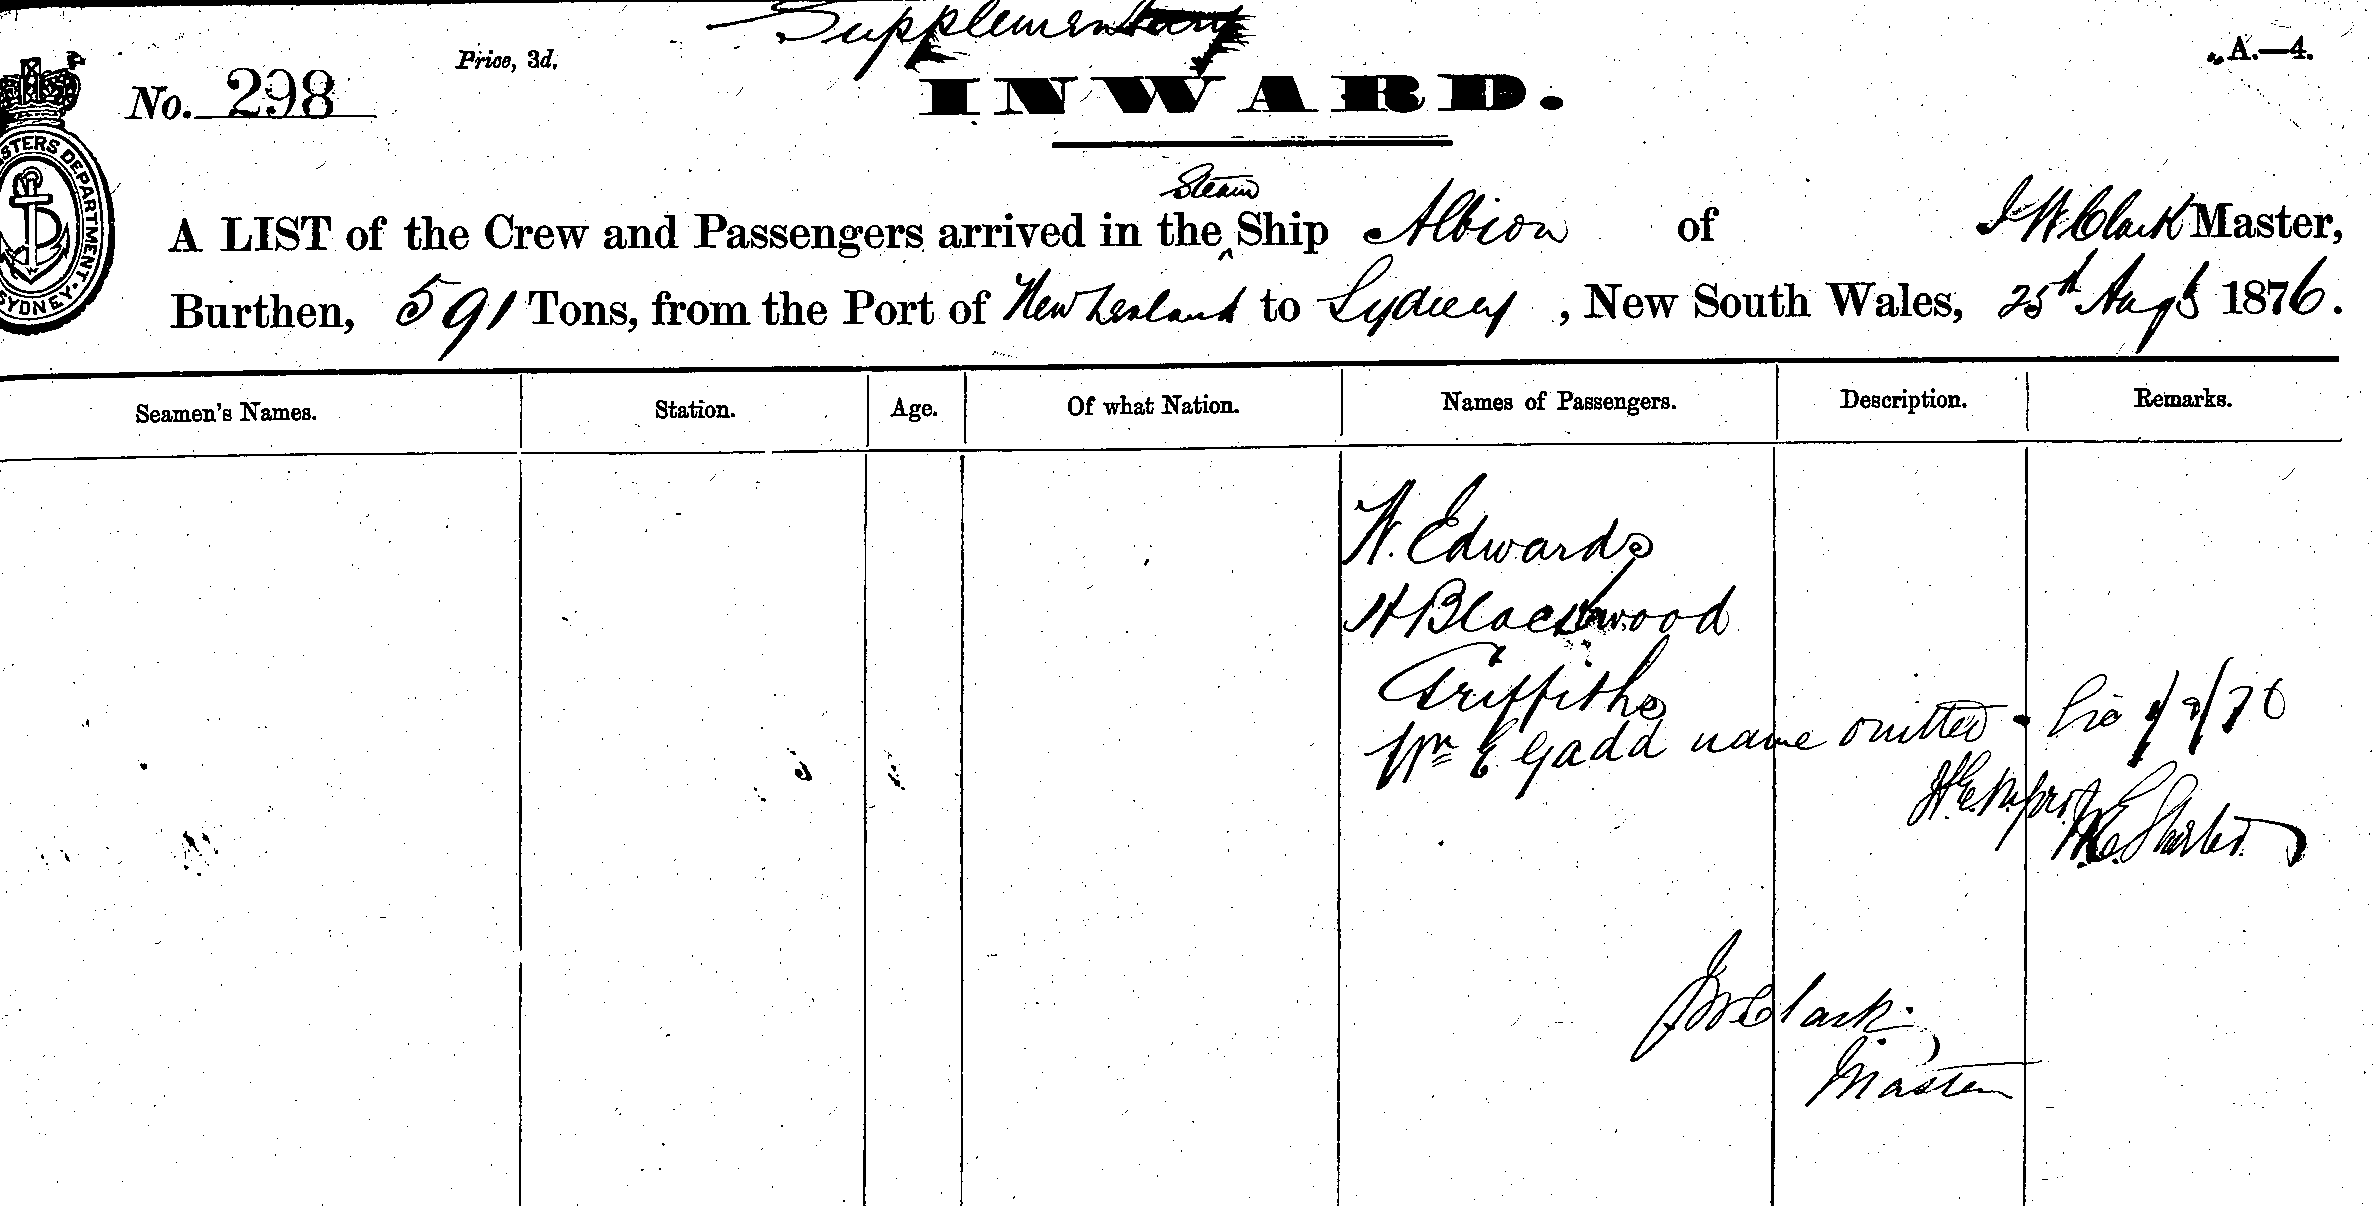 Supplementary
Price, 3d.
A.—4.
No. 298
INWARD.
STERS DEPARTMENT. SYDNEY.
Steam
A LIST of the Crew and Passengers arrived in the ‸ Ship Albion of J W Clark Master,
Burthen, 591 Tons, from the Port of New Zealand to Sydney, New South Wales, 25th Augt 1876.
Seamen's Names. Station. Age. Of what Nation. Names of Passengers. Description. Remarks.
W. Edwards
H Blackwood
Griffiths
Wm E Gadd name omitted
J W Clark.
Master